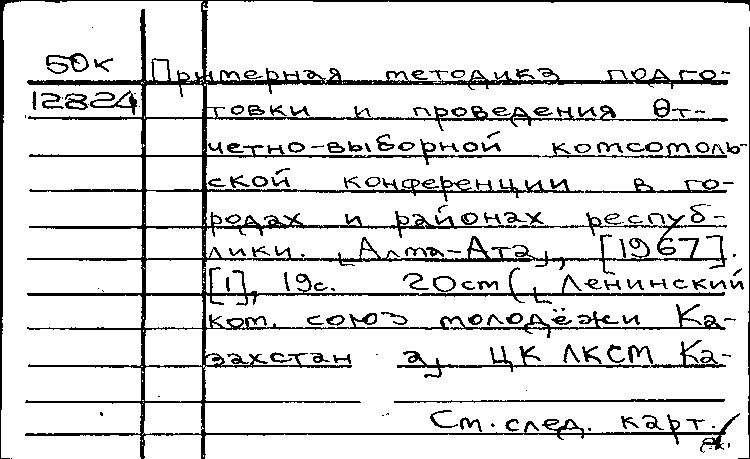 50к
12824
Примерная методика подго-
товки и проведения От-
четно-выборной комсомоль-
ской конференции в го-
родах и районах респуб-
лики. Алма-Ата, [1967].
[1], 19с. 20см (Ленинский
ком. союз молодёжи Ка-
захстан а, ЦК ЛКСМ Ка-
См.след. карт.